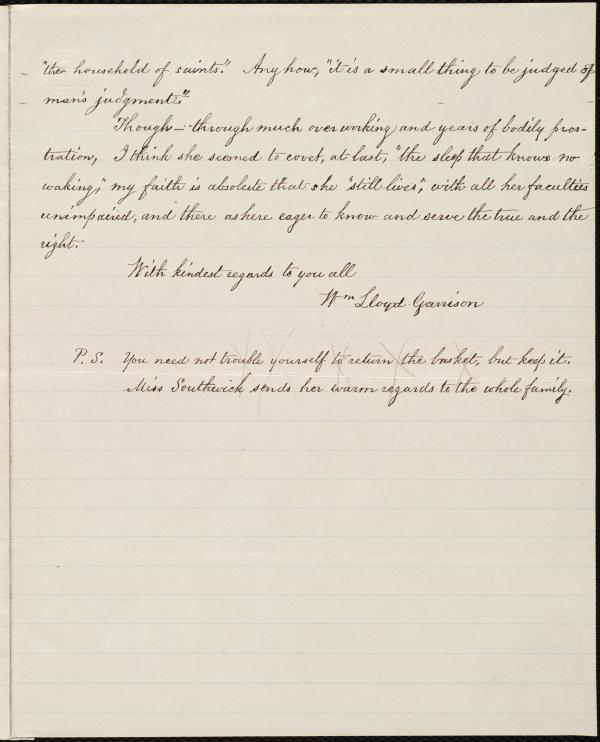 "the household of saints." Anyhow, "it is a small thing to be judged of
man's judgment."
Though—through much overworking and years of bodily pros-
tration, I think she seemed to covet, at last, "the sleep that knows no
waking," my faith is absolute that she "still lives", with all her faculties
unimpaired, and there as here eager to know and serve the true and the
right.
With kindest regards to you all
Wm Lloyd Garrison
P. S. You need not trouble yourself to return the basket, but keep it.
Miss Southwick sends her warm regards to the whole family.